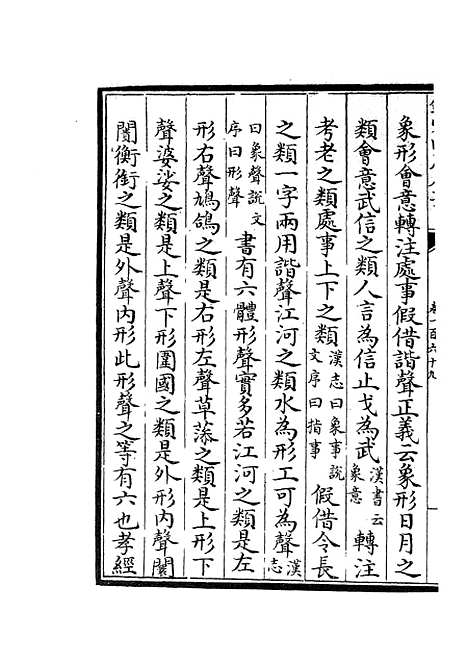 卷一百六十九
象形會意轉注處事假借諧聲正義云象形日月之
類會意武信之類人言為信止戈為武漢書云象意轉注
考老之類處事上下之類漢志曰象事說文序曰指事假借令長
之類一字兩用諧聲江河之類水為形工可為聲漢志
曰象聲說文序曰形聲書有六體形聲實多若江河之類是左
形右聲鳩鴿之類是右形左聲草藻之類是上形下
聲婆娑之類是上聲下形圍國之類是外形內聲闤
闠衡銜之類是外聲內形此形聲之等有六也孝經